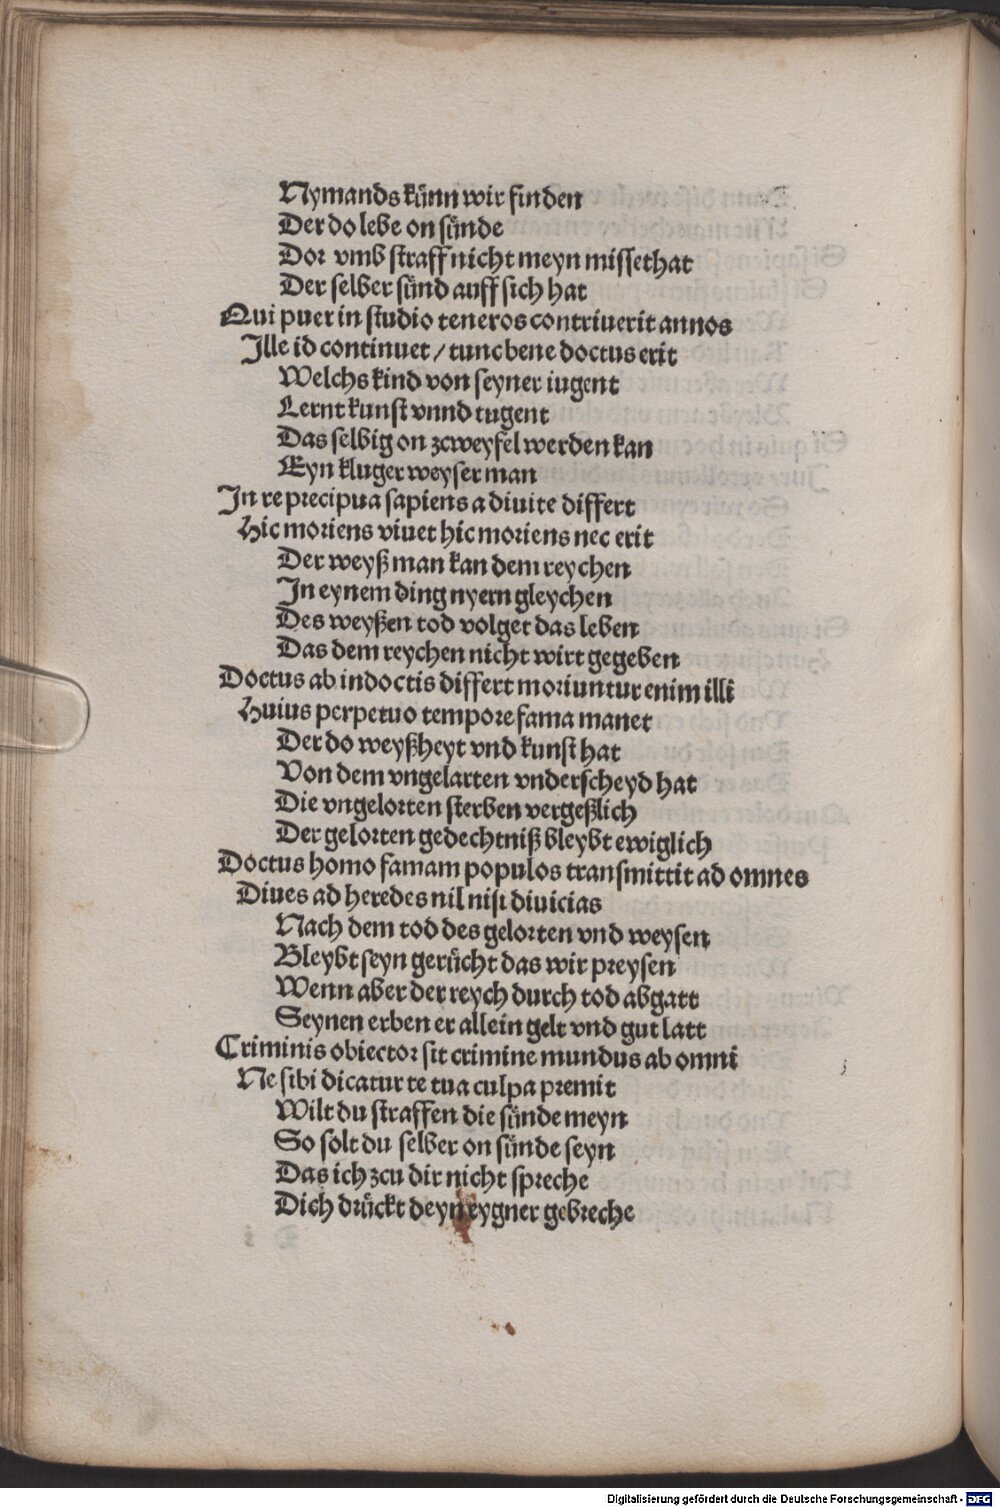 Nymands künn wir finden
Der do lebe on sünde
Dor vmb straff nicht meyn missethat
Der selber sünd auff sich hat
Qui puer in studio teneros contriuerit annos
Ille id continuet / tunc bene doctus erit
Welchs kind von seyner iugent
Lernt kunst vnnd tugent
Das selbig on zcweyfel werden kan
Eyn kluger weyser man
In re precipua sapiens a diuite differt
Hic moriens viuet hic moriens nec erit
Der weyß man kan dem reychen
In eynem ding nyern gleychen
Des weyßen tod volget das leben
Das dem reychen nicht wirt gegeben
Doctus ab indoctis differt moriuntur enim illi
Huius perpetuo tempore fama manet
Der do weyßheyt vnd kunst hat
Von dem vngelarten vnderscheyd hat
Die vngelorten sterben vergeßlich
Der gelorten gedechtniß bleybt ewiglich
Doctus homo famam populos transmittit ad omnes
Diues ad heredes nil nisi diuicias
Nach dem tod des gelorten vnd weysen
Bleybt seyn gerücht das wir preysen
Wenn aber der reych durch tod abgatt
Seynen erben er allein gelt vnd gut latt
Criminis obiector sit crimine mundus ab omni
Ne sibi dicatur te tua culpa premit
Wilt du straffen die sünde meyn
So solt du selber on sünde seyn
Das ich zcu dir nicht spreche
Dich drückt deyn eygner gebreche
Digitalisierung gefördert durch die Deutsche Forschungsgemeinschaft - DFG